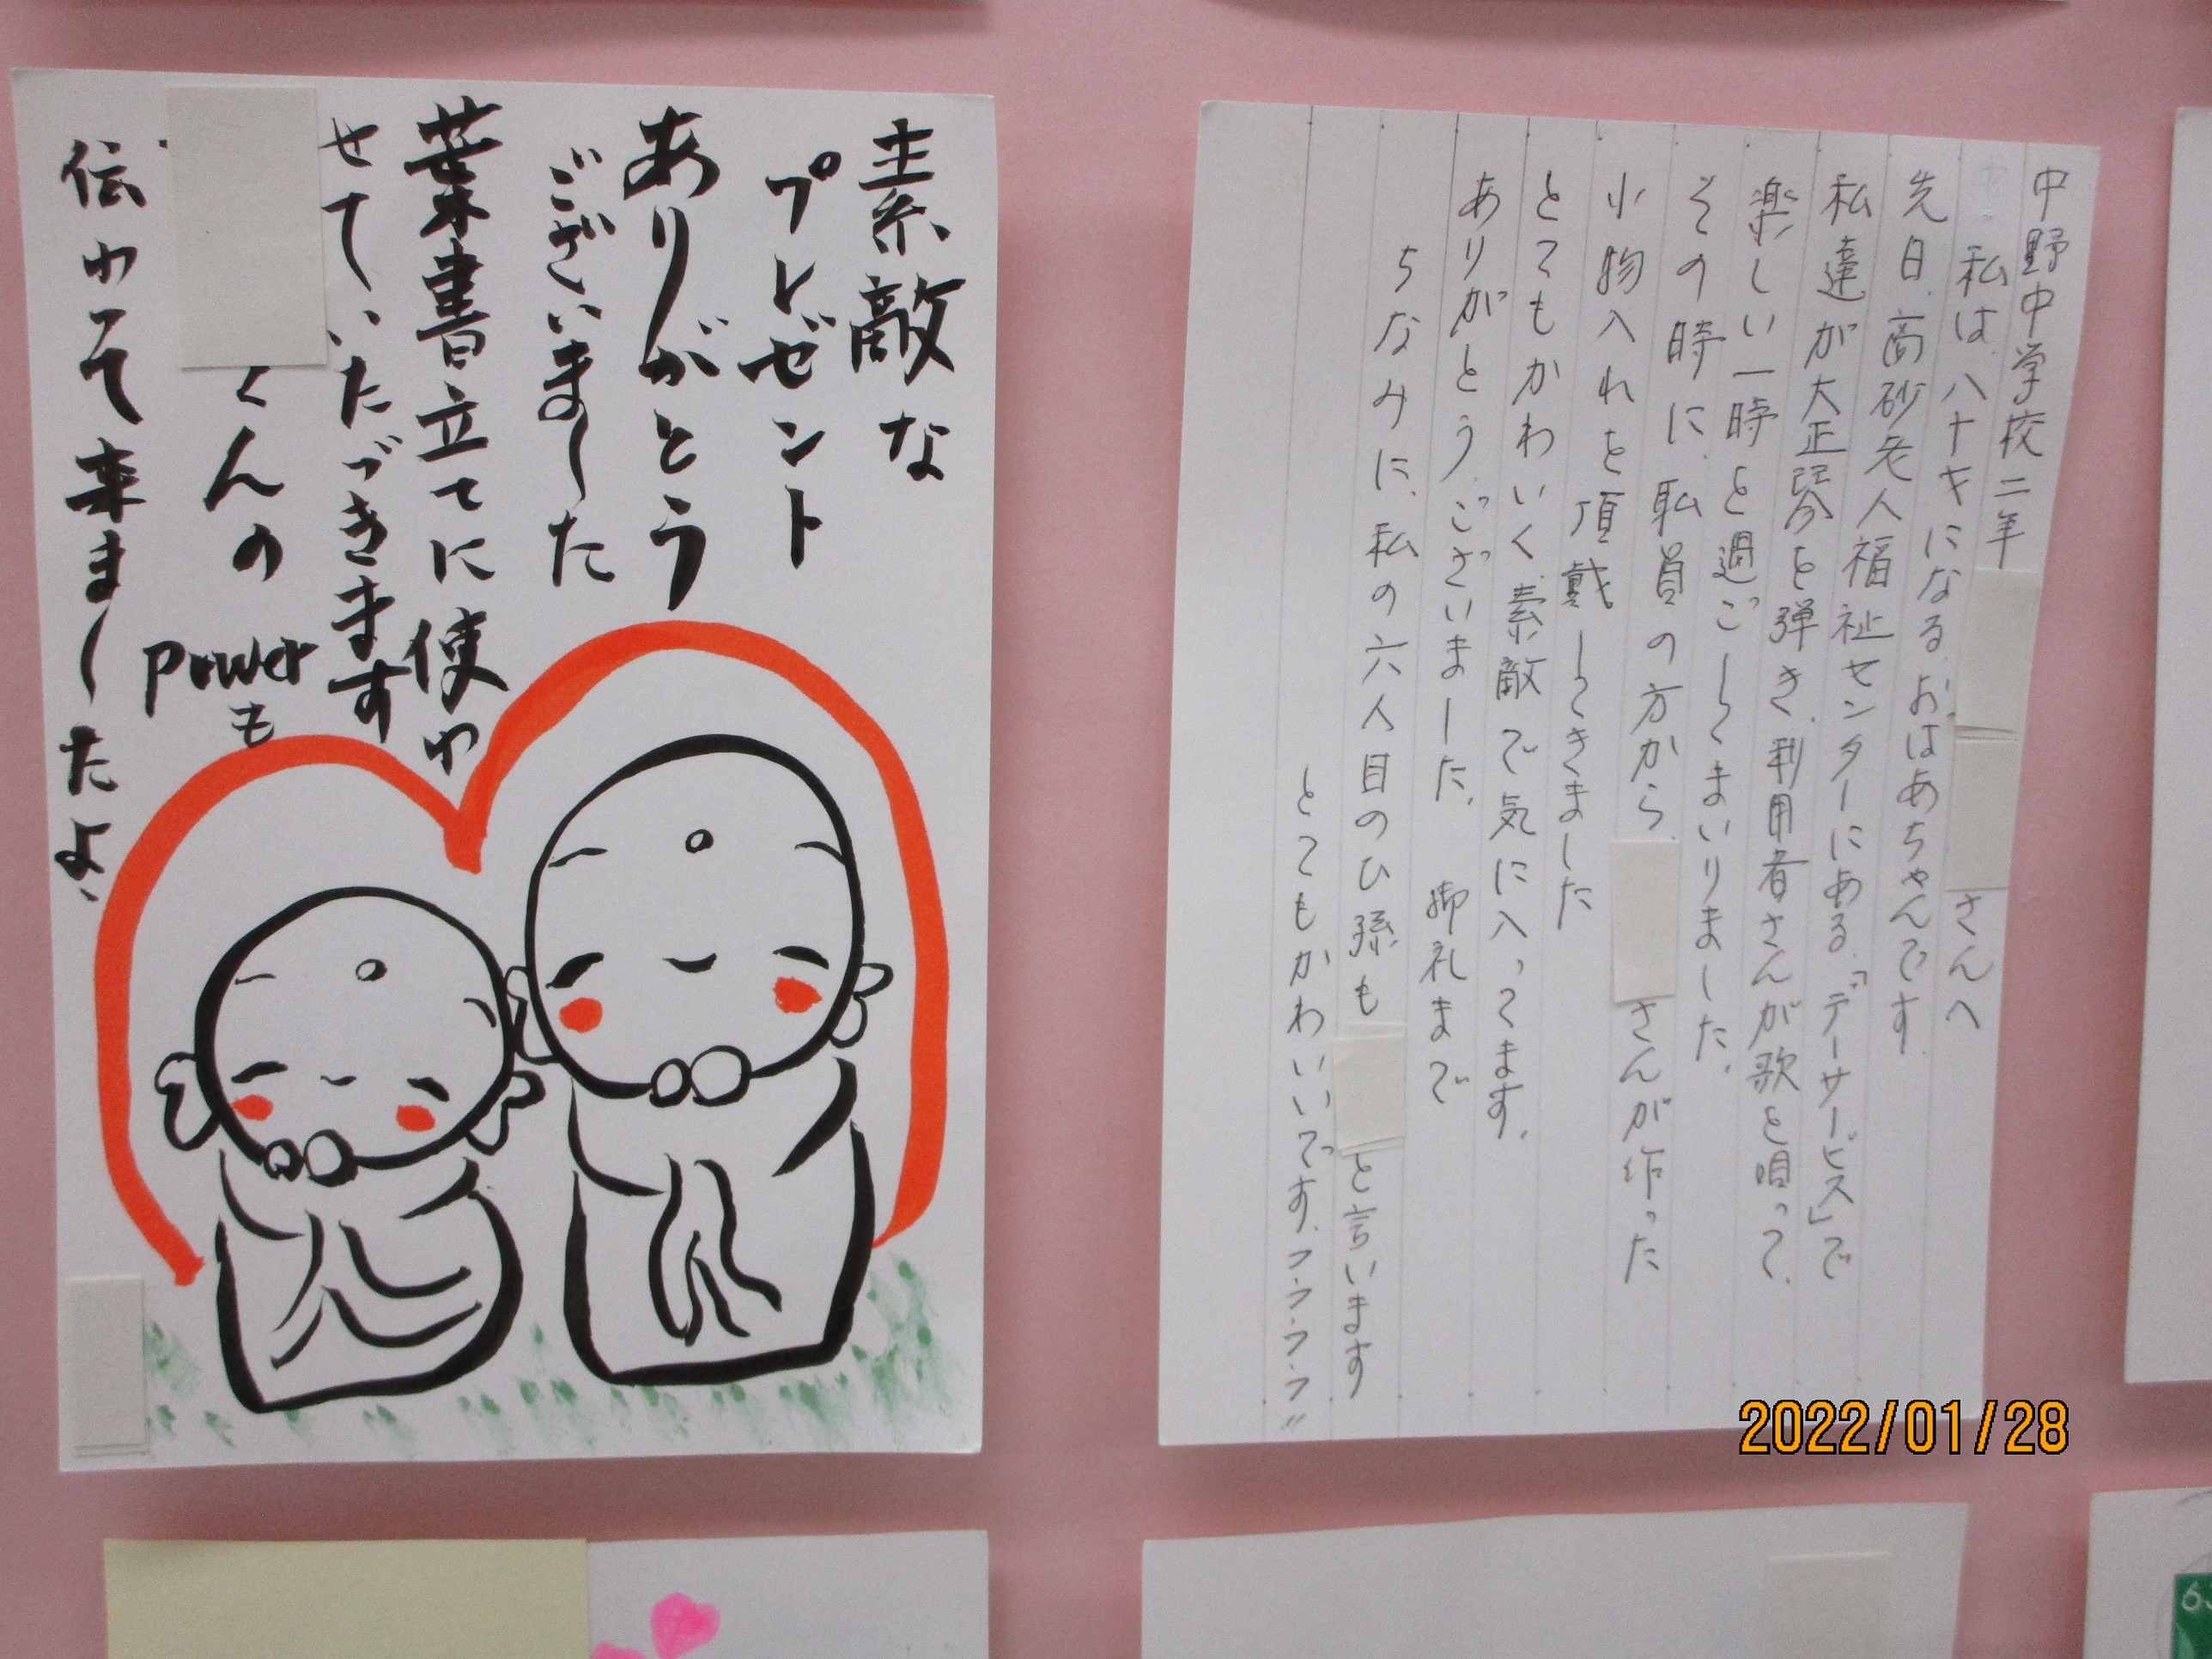 素敵な
プレゼント
ありがとう
ございました
葉書立てに使わ
せていたゞきます
さんの
powerも
伝わって来ましたよ、
中野中学校二年
さんへ
私は、八十才になるおばあちゃんです
先日、高砂老人福祉センターにある、「デーサービス」で
私達が大正琴を弾き、利用者さんが歌を唄って、
楽しい一時を過ごしてまいりました。
その時に、職員の方から
さんが作った
小物入れを頂戴してきました
とてもかわいく素敵で気に入ってます。
ありがとう、ございました、
御礼まで
ちなみに、私の六人目のひ孫も
と言います
とてもかわいいです。フ・フ・フ・フ〃
2022/01/28